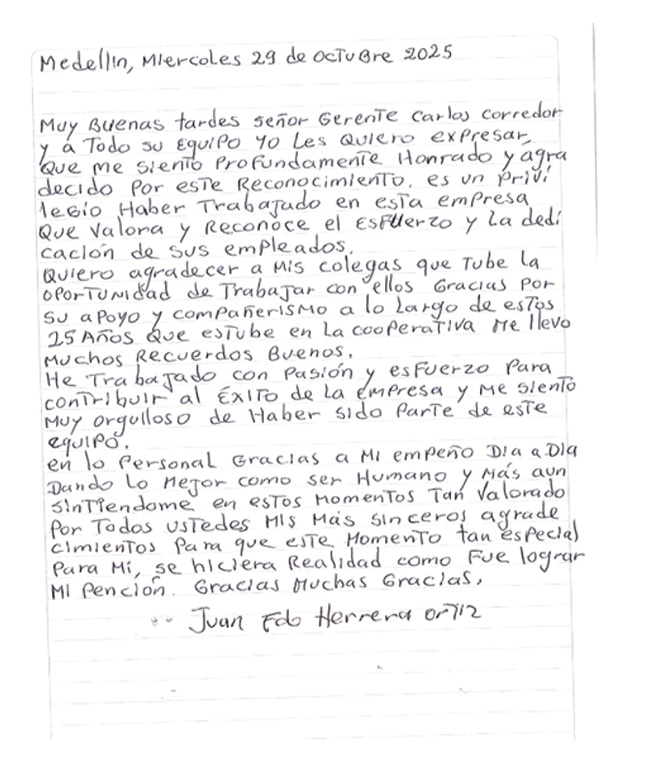 Medellin, Miercoles 29 de octubre 2025
Muy Buenas tardes señor Gerente Carlos corredor
y a Todo su Equipo yo Les Quiero expresar
Que me siento Profundamente Honrado y agra
decido Por este Reconocimiento. es un Privi
legio Haber Trabajado en esta empresa
Que Valora y Reconoce el Esfuerzo y La dedi
cación de sus empleados.
Quiero agradecer a Mis colegas que Tube la
oportunidad de Trabajar con ellos Gracias Por
su apoyo y compañerismo a lo Largo de estos
25 Años Que estube en la cooperativa Me llevo
Muchos Recuerdos Buenos.
He Trabajado con Pasión y esfuerzo Para
contribuir al Éxito de La empresa y Me siento
Muy orgulloso de Haber sido Parte de este
equipo.
en lo Personal Gracias a Mi empeño Dia a Dia
Dando Lo Mejor como ser Humano y Más aun
sintiendome en estos Momentos Tan Valorado
Por Todos ustedes Mis Más sinceros agrade
cimientos Para que este Momento tan especial
Para Mí, se hiciera Realidad como Fue lograr
Mi Pención. Gracias Muchas Gracias.
Juan Edo Herrera ortiz